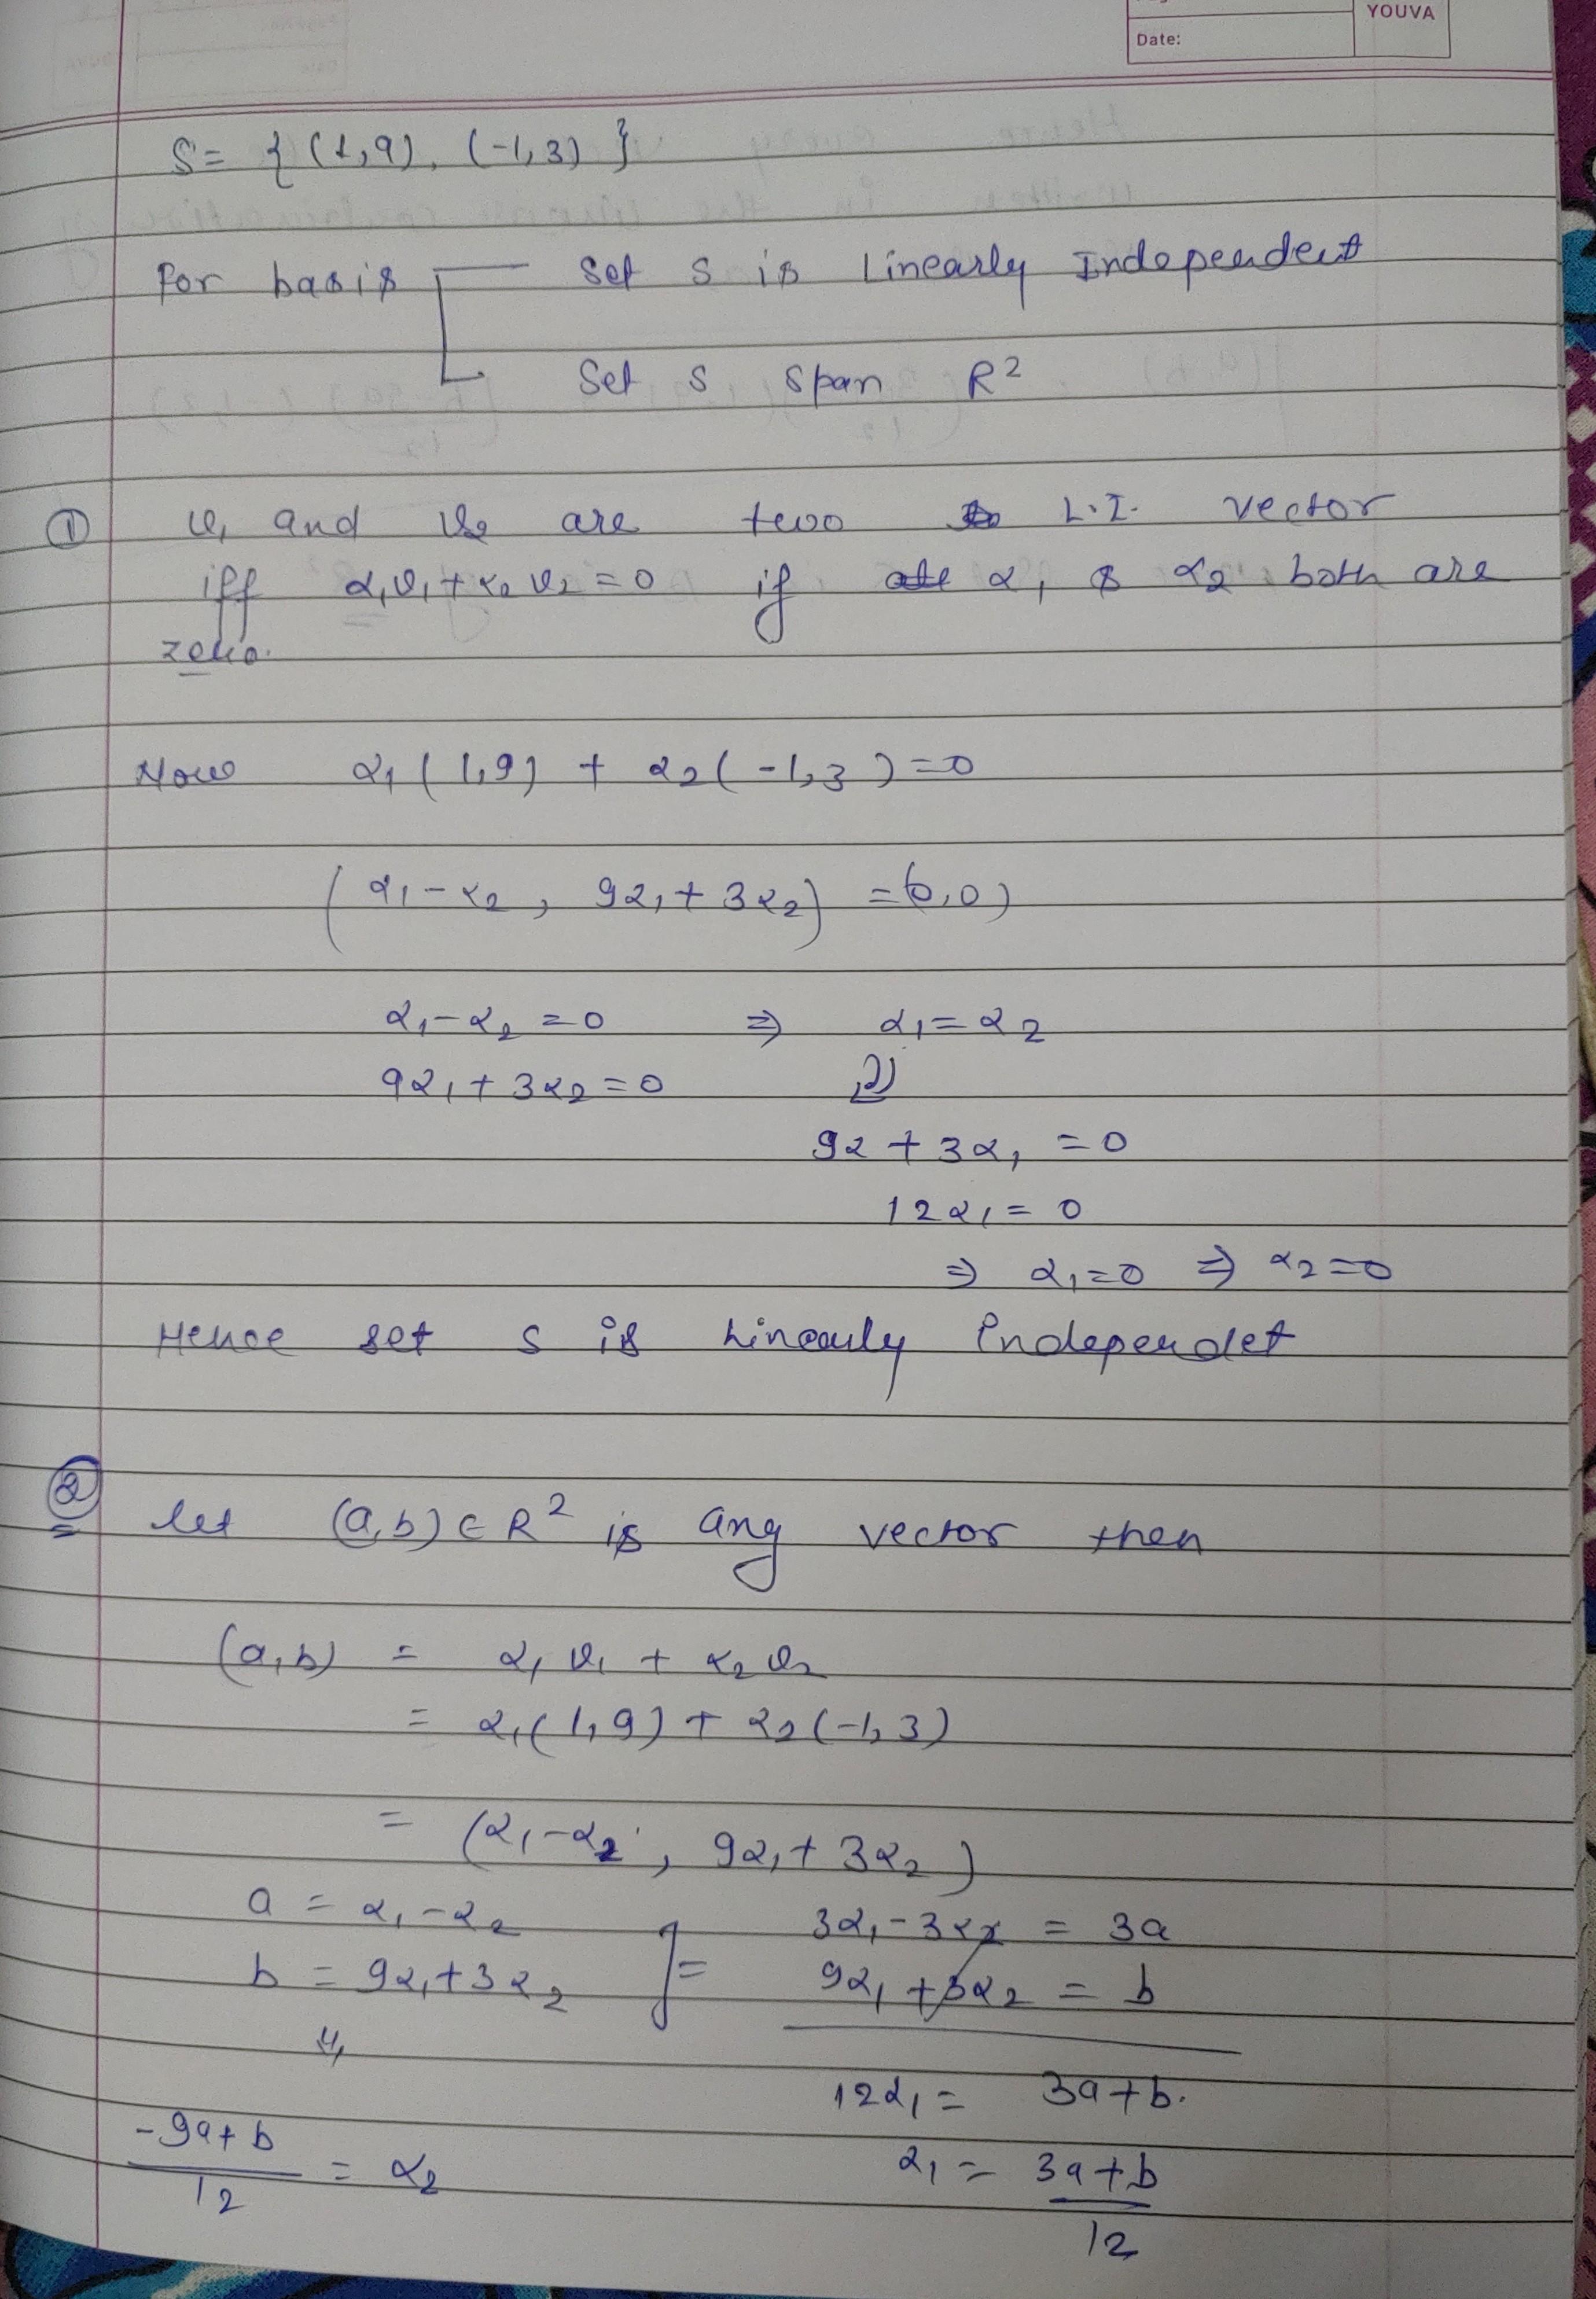 YOUVA
Date:
S = { (1,9), (-1,3) }
For basis Set S is Linearly Independent
Set S Span R²
① v₁ and v₂ are two L.I. vector
iff α₁v₁ + α₂v₂ = 0 if α₁ & α₂ both are
zero.
Now α₁(1,9) + α₂(-1,3) = 0
(α₁-α₂, 9α₁+3α₂) = (0,0)
α₁-α₂ = 0 ⇒ α₁ = α₂
9α₁+3α₂ = 0 ⇓
9α + 3α₁ = 0
12α₁ = 0
⇒ α₁=0 ⇒ α₂=0
Hence set S is Linearly Independet
② let (a,b) ∈ R² is any vector then
(a,b) = α₁v₁ + α₂v₂
= α₁(1,9) + α₂(-1,3)
= (α₁-α₂, 9α₁+3α₂)
a = α₁-α₂ 3α₁-3α₂ = 3a
b = 9α₁+3α₂ } = 9α₁+3α₂ = b
⇓
12α₁ = 3a+b.
-9a+b/12 = α₂ α₁ = 3a+b/12